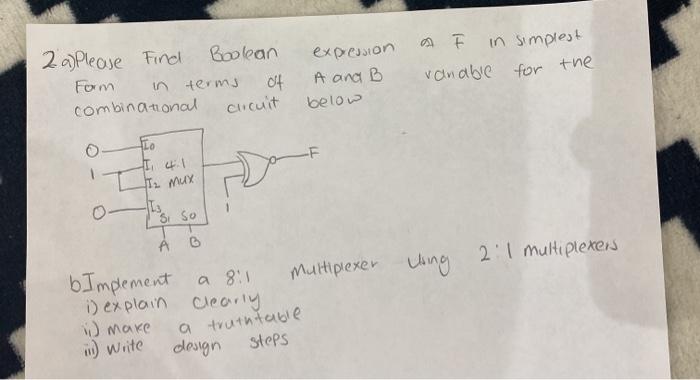 2 a) Please Find Boolean expression of F in simplest
Form in terms of A and B variable for the
combinational circuit below
0 I0
1 I1 4:1
I2 mux
0 I3
S1 S0
A B
1
F
b Implement a 8:1 Multiplexer Using 2:1 multiplexers
i) explain clearly
ii) make a truthtable
iii) Write design steps